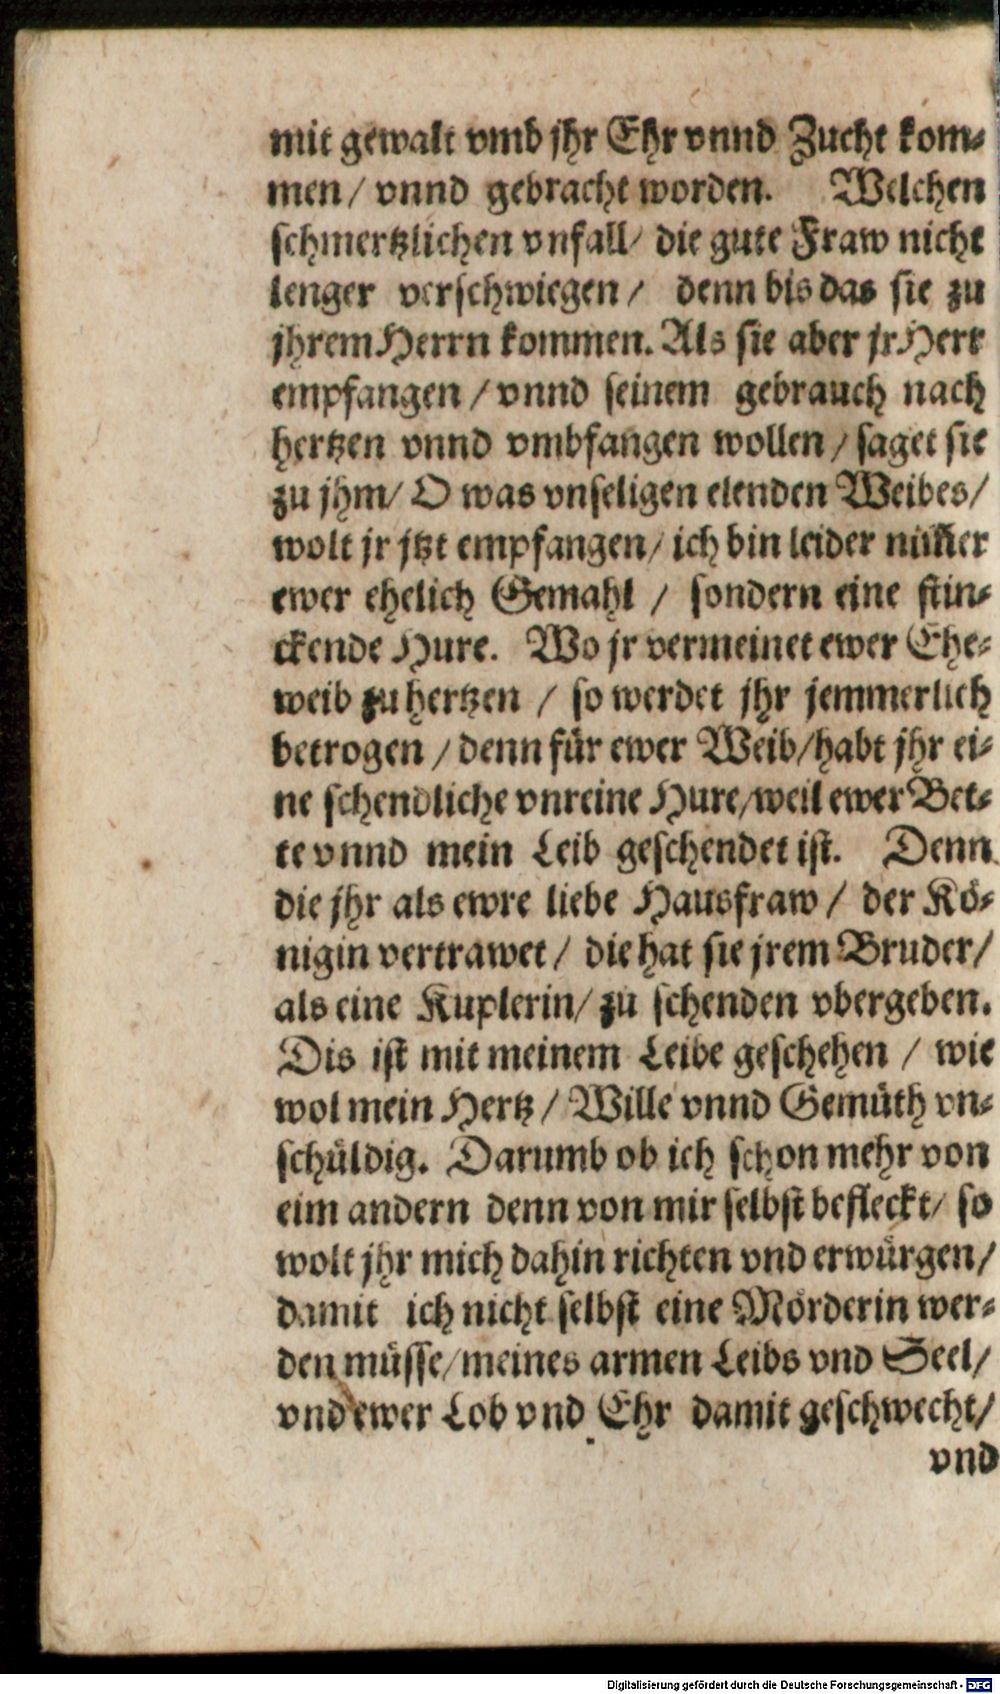 mit gewalt vmb jhr Ehr vnnd Zucht kom⸗
men / vnnd gebracht worden. Welchen
schmertzlichen vnfall / die gute Fraw nicht
lenger verschwiegen / denn bis das sie zu
jhrem Herrn kommen. Als sie aber jr Herr
empfangen / vnnd seinem gebrauch nach
hertzen vnnd vmbfangen wollen / saget sie
zu jhm / O was vnseligen elenden Weibes /
wolt jr jtzt empfangen / ich bin leider nim̃er
ewer ehelich Gemahl / sondern eine stin⸗
ckende Hure. Wo jr vermeinet ewer Ehe⸗
weib zu hertzen / so werdet jhr jemmerlich
betrogen / denn für ewer Weib / habt jhr ei⸗
ne schendliche vnreine Hure / weil ewer Bet⸗
te vnnd mein Leib geschendet ist. Denn
die jhr als ewre liebe Hausfraw / der Kö⸗
nigin vertrawet / die hat sie jrem Bruder /
als eine Kuplerin / zu schenden vbergeben.
Dis ist mit meinem Leibe geschehen / wie
wol mein Hertz / Wille vnnd Gemüth vn⸗
schüldig. Darumb ob ich schon mehr von
eim andern denn von mir selbst befleckt / so
wolt jhr mich dahin richten vnd erwürgen /
damit ich nicht selbst eine Mörderin wer⸗
den müsse / meines armen Leibs vnd Seel /
vnd ewer Lob vnd Ehr damit geschwecht /
vnd
Digitalisierung gefördert durch die Deutsche Forschungsgemeinschaft - DFG